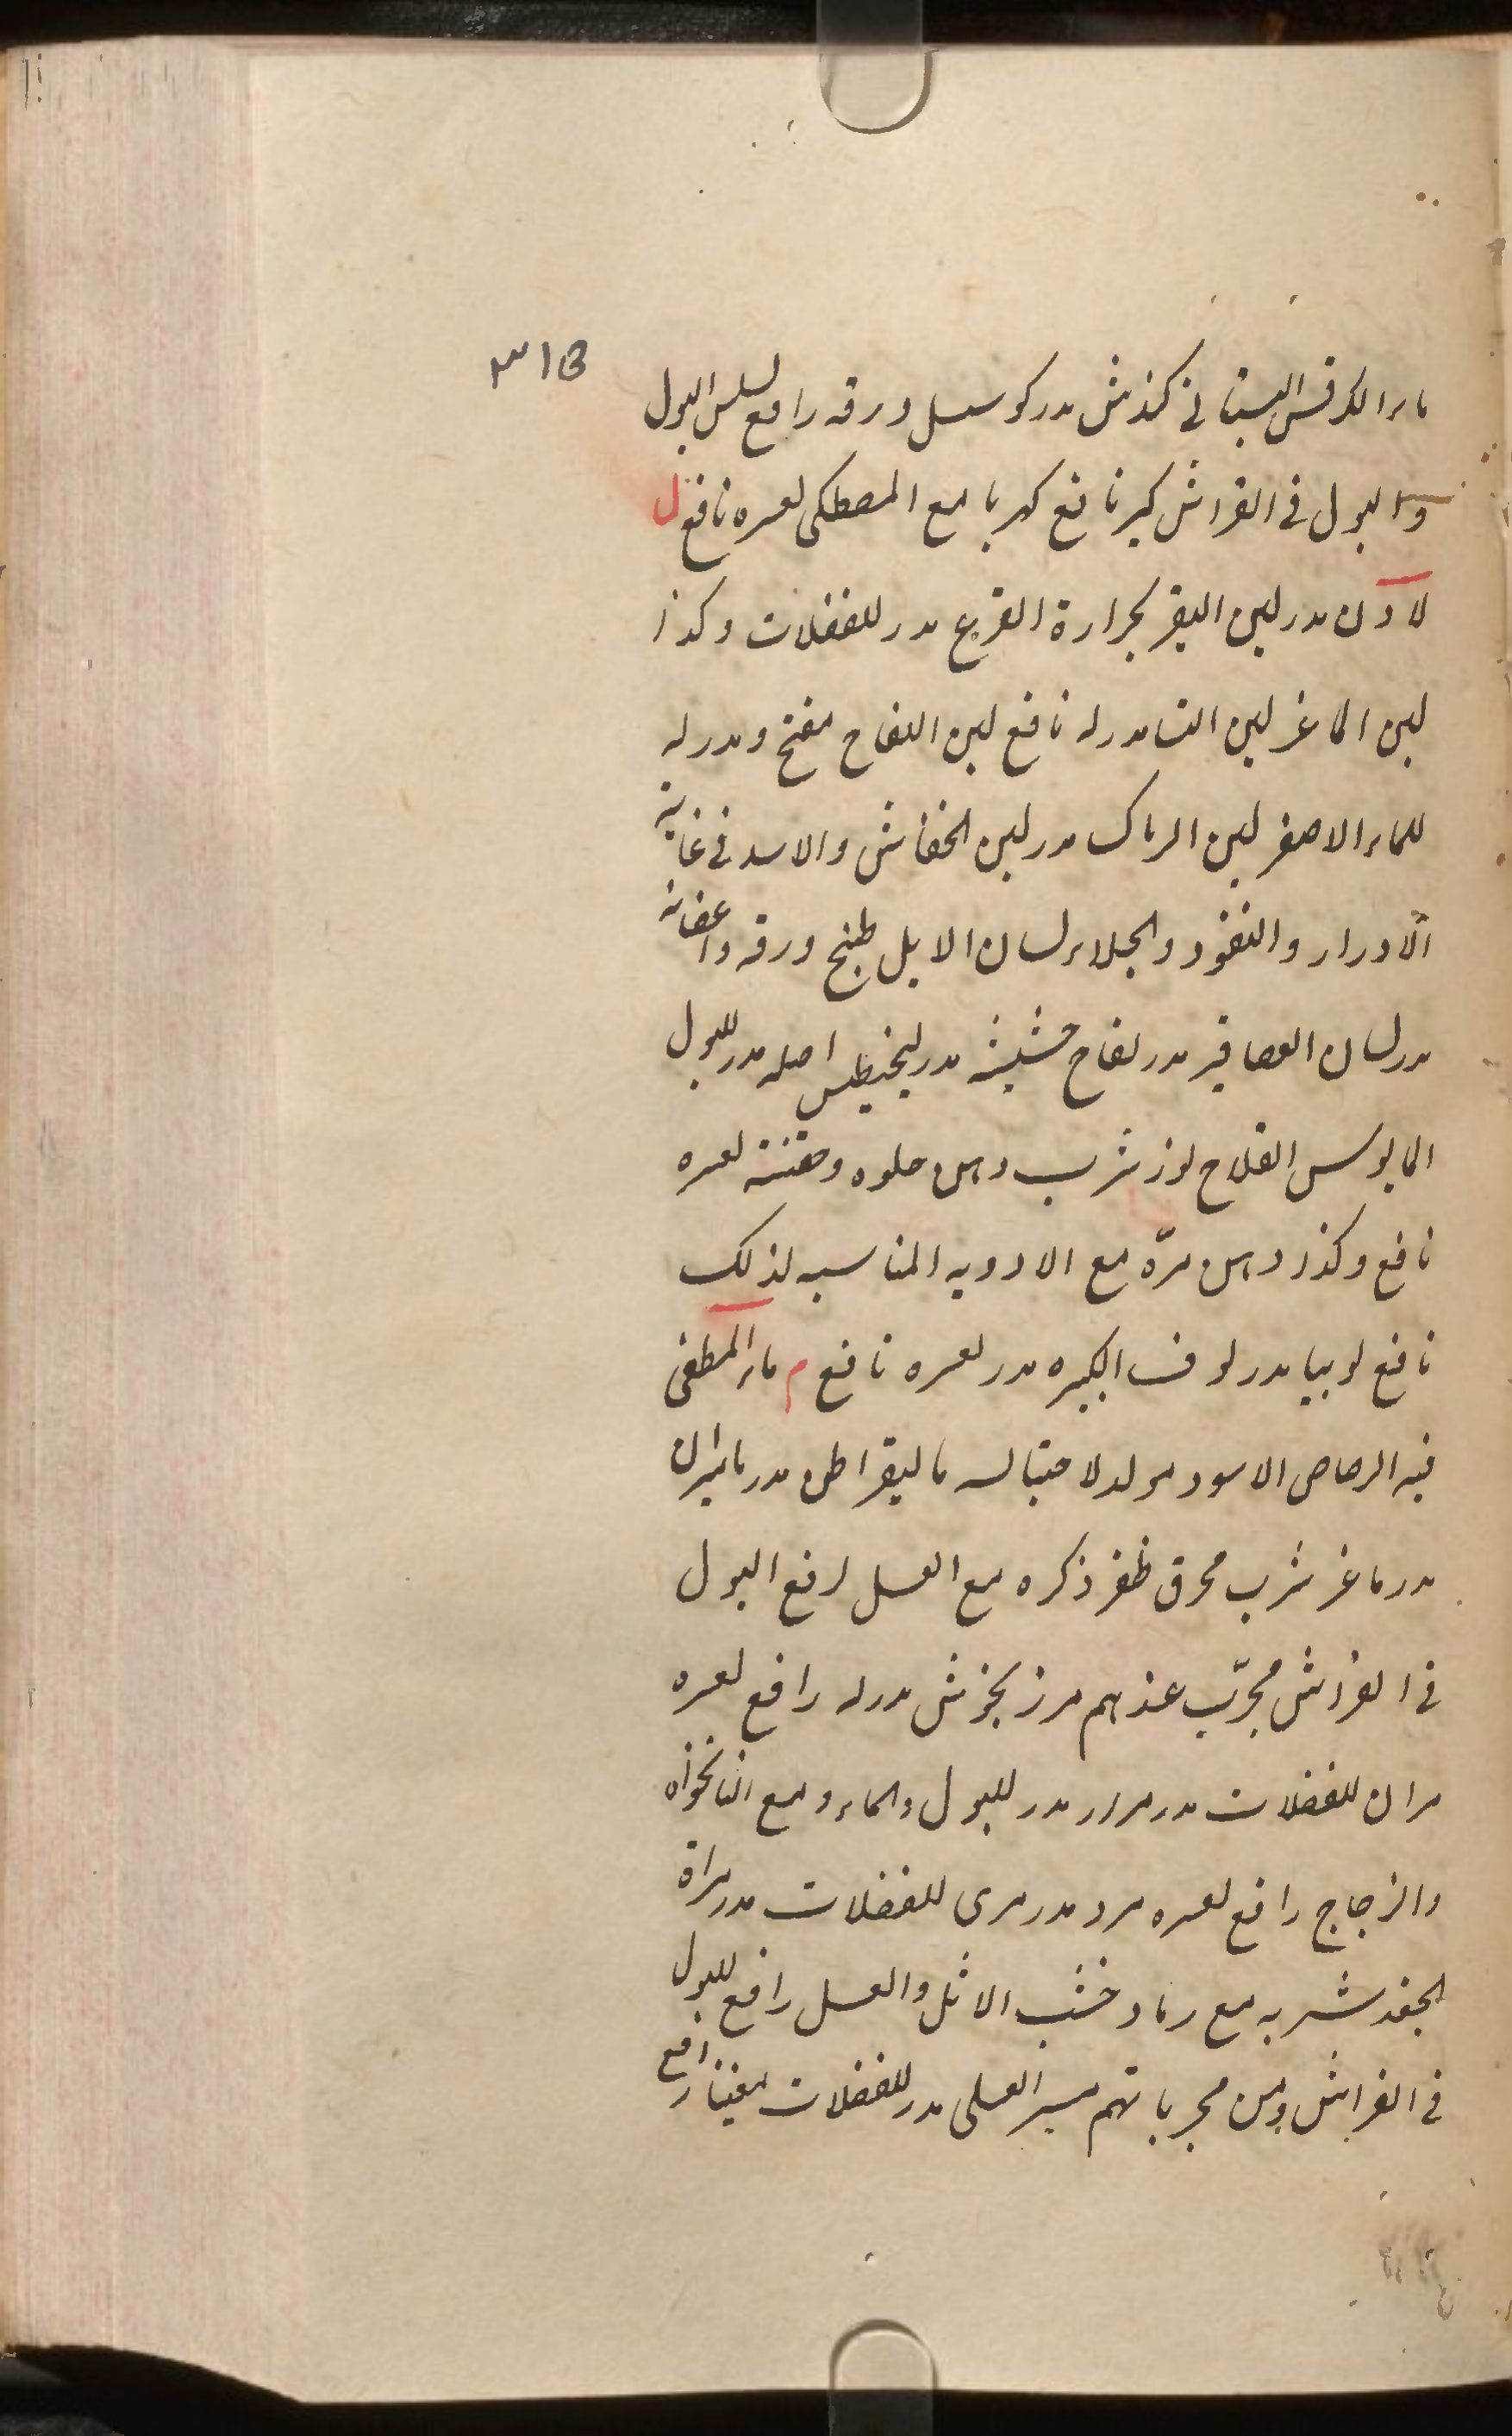 ٣١٥
ماء الكرفس البستانى كمذش مدر كوسسل ورقه رافع لسلس البول
والبول فى الفراش كبر نافع كهربا مع المصطكى لعسره نافع ل
لادن مدر لبن البقر بحرارة القرع مدر للفضلات وكذا
لبن الماعز لبن النسا مدر له نافع لبن اللقاح مفتح ومدر له
للماء الاصفر لبن الرماك مدر لبن الخفاش والاسد فى غاية
الادرار والنفوذ والجلاء لسان الابل طبخ ورقه واغصانه
مدر لسان العصافير مدر لفاح حشيشه مدر ليخيطس اصله مدر للبول
القلاح لوز شرب دهن حلوه وحقنته لعسره
نافع وكذا دهن مره مع الادويه المناسبه لذلك
نافع لوبيا مدر لوف الكبيره مدر لعسره نافع م ماء المطفى
فيه الرصاص الاسود مولد لاحتباسه ماليقراطن مدر ماميران
مدر ماعز شرب محرق ظفر ذكره مع العسل رافع البول
فى الفراش مجرّب عندهم مرزنجوش مدر له رافع لعسره
مران للفضلات مدر مرار مدر للبول والماء ومع النانخواه
والزجاج رافع لعسره مرد مدر مرى للفضلات مدر مرارة
الجغد شربه مع رماد خشب الاثل والعسل رافع للبول
فى الفراش ومن مجرباتهم العسلى مدر للفضلات رافع